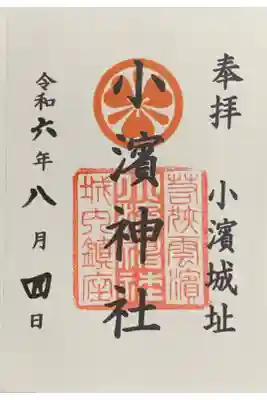 奉拝
小濱城址
小濱神社
若狭雲濱
小濱神社
城内鎮座
令和六年八月四日